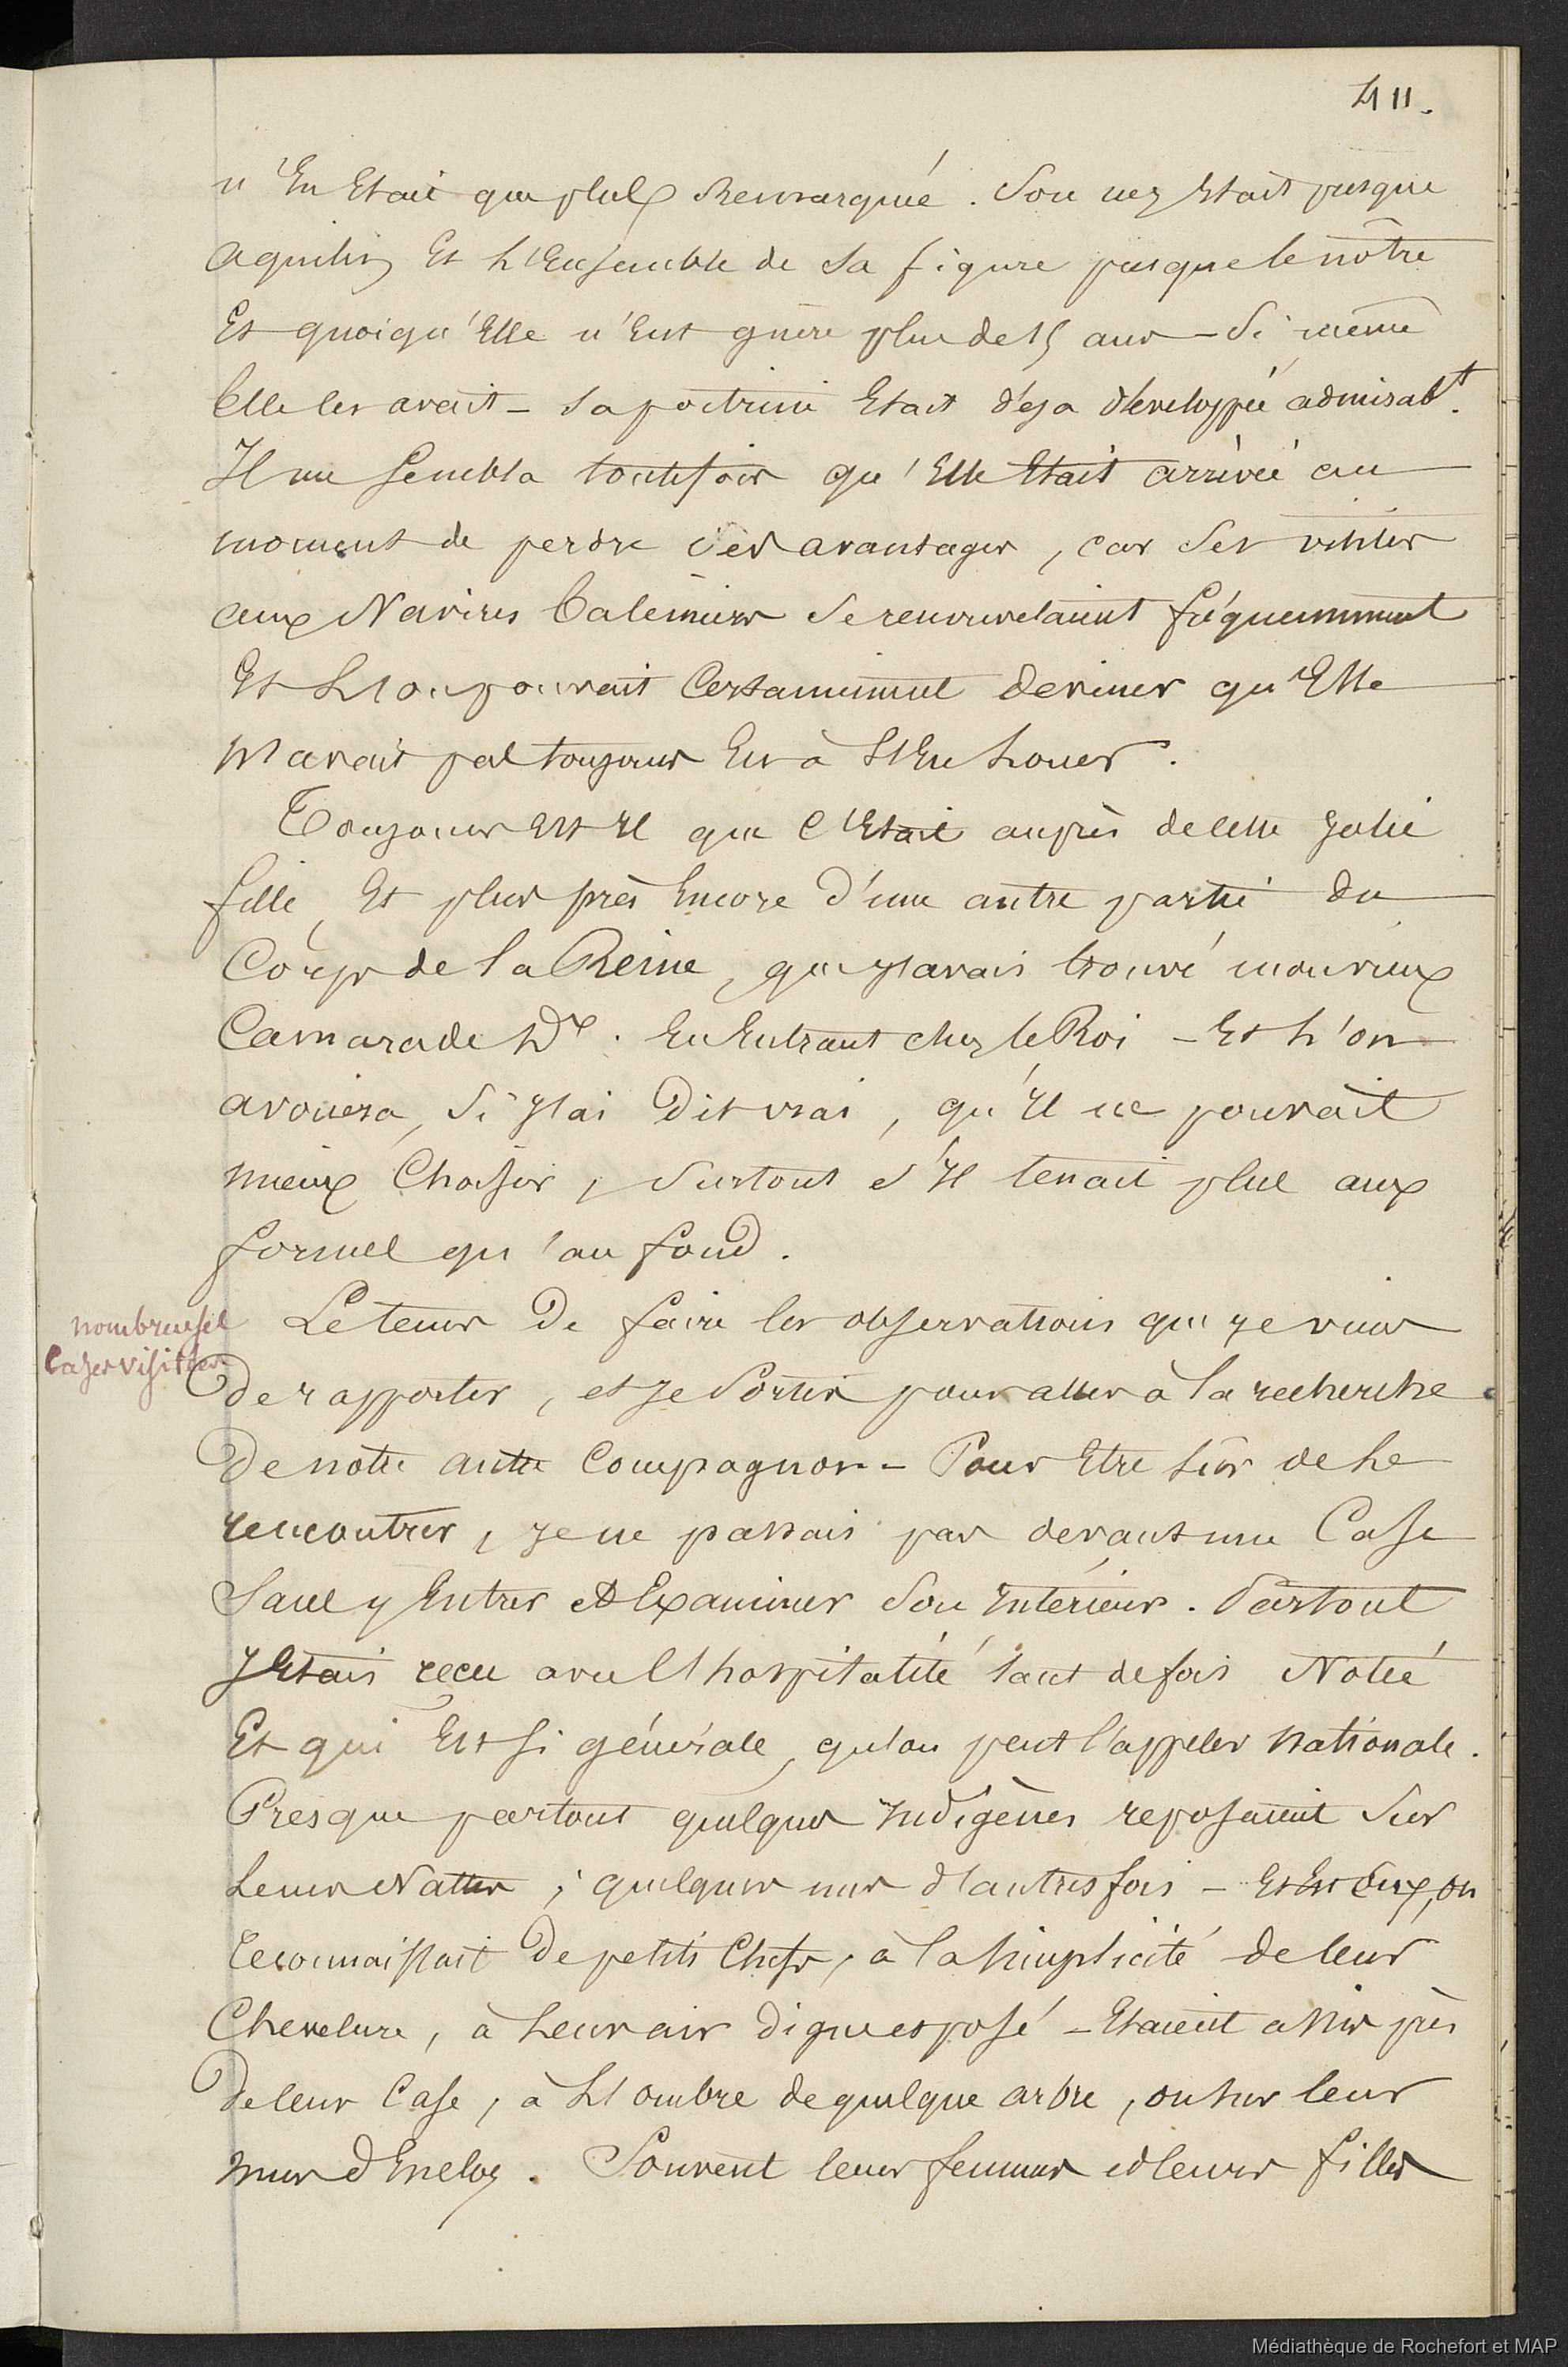 411.
n'En Etait que plus Remarquée. Son nez Etait presque
aquilin Et L'Ensemble de Sa figure presque le nôtre
Et quoiqu'Elle n'Eut guère plus de 15 ans – Si même
Elle les avait – Sa poitrine Etait déja dévelopée admirabt.
Il me Sembla toutefois qu'Elle Etait arrivée au
moment de perdre ces avantages, car Ses visites
aux Navires baleiniers Se renouvelaient fréquemment
Et L'on pouvait Certainement deviner qu'Elle
N'avait pas toujours Eu à S'En Louer.
Toujours Est Il que C'Etait auprès de cette Jolie
fille, Et plus près Encore d'une autre partie du
Corps de la Reine, que J'avais trouvé mon vieux
Camarade Dx. En Entrant chez le Roi – Et L'on
avouera, Si J'ai Dit vrai, qu'Il ne pouvait
mieux Choisir, Surtout S'Il tenait plus aux
formes qu'au fond.
nombreuses
Cases visitées
Le tems De faire les observations que Je viens
De rapporter, et Je Sortis pour aller à la recherche
De notre autre Compagnon – Pour Etre Sûr de Le
rencontrer, Je ne passais pas devant une Case
Sans y Entrer et Examiner Son Intérieur. Partout
J'Etais reçu avec l'hospitalité tant de fois Notée
Et qui Est Si générale, qu'on peut l'appeler Nationale.
Presque partout quelques Indigènes reposaient Sur
Leurs Nattes; quelques uns d'autres fois – Et En Eux, on
reconnaissait De petits Chefs, à la Simplicité de leur
Chevelure, à Leur air digne et posé – Etaient assis près
De leur Case, à L'ombre de quelque arbre, ou sur leur
mur d'Enclos. Souvent leurs femmes et leurs filles
Médiathèque de Rochefort et MAP